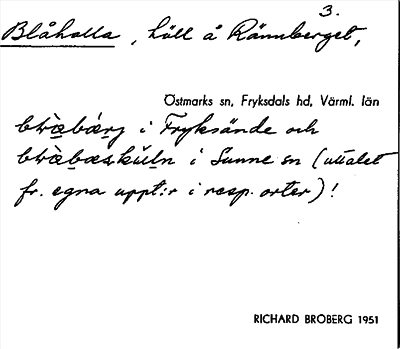 3.
Blåhalla, häll å Rännberget,
Östmarks sn, Fryksdals hd, Värml. län
i Fryksände och
i Sunne sn (uttalet
fr. egna uppt:r i resp. orter)!
RICHARD BROBERG 1951